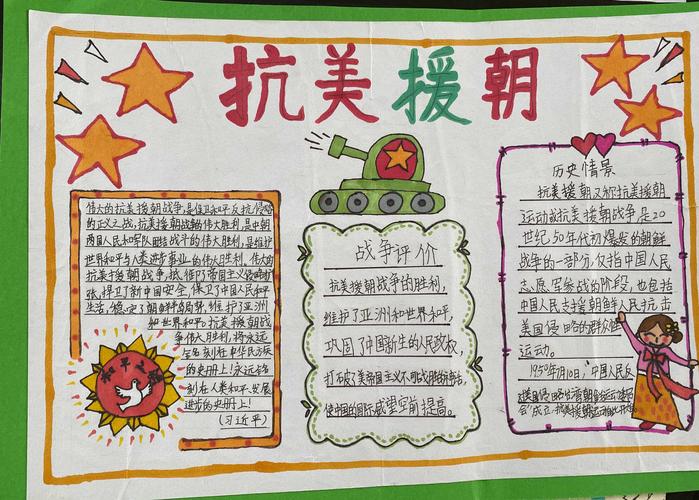 抗美援朝
伟大的抗美援朝战争,是保卫和平反抗侵略
的正义之战,抗美援朝战争的伟大胜利,是中朝
两国人民和军队团结战斗的伟大胜利,是维护
世界和平与人类进步事业的伟大胜利。伟大的
抗美援朝战争,抵御了帝国主义侵略扩
张,捍卫了新中国安全,保卫了中国人民和平
生活,稳定了朝鲜半岛局势,维护了亚洲
和世界和平。抗美援朝战
争伟大胜利,将永远
铭刻在中华民族
的史册上!永远铭
刻在人类和平、发展
进步的史册上!
(习近平)
和平之
战争评价
抗美援朝战争的胜利,
维护了亚洲和世界和平,
巩固了中国新生的人民政权,
打破了美帝国主义不可战胜的神话,
使中国的国际威望空前提高。
历史情景
抗美援朝又称抗美援朝
运动或抗美援朝战争是20
世纪50年代初爆发的朝鲜
战争的一部分,仅指中国人民
志愿军参战的阶段,也包括
中国人民支援朝鲜人民抗击
美国侵略的群众性
运动。
1950年7月10日,"中国人民反
对美国侵略台湾朝鲜运动委员
会"成立,抗美援朝运动